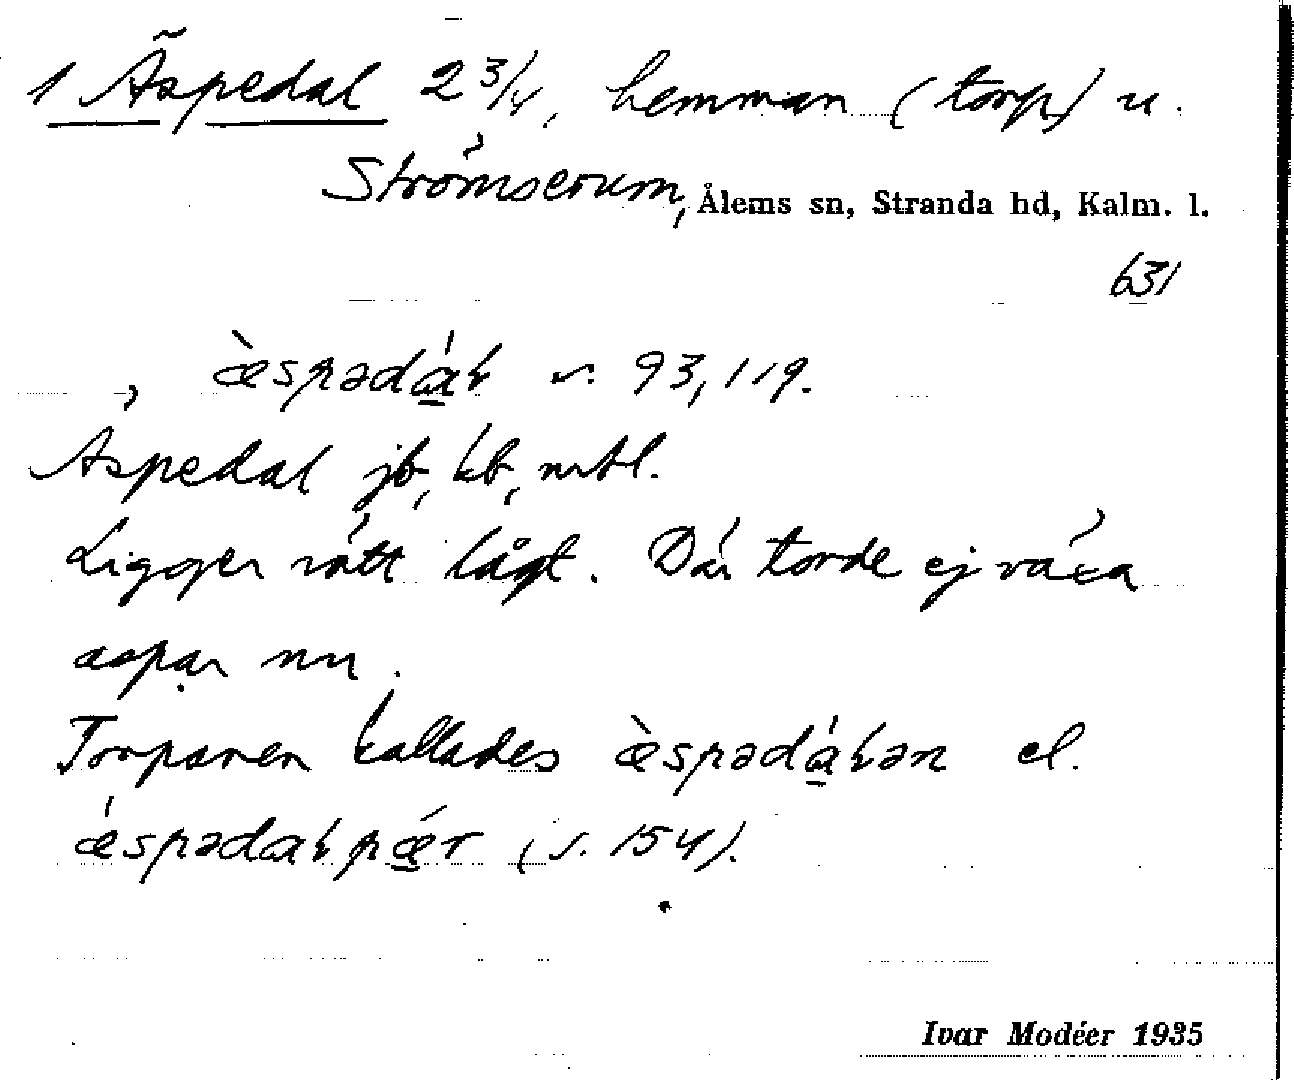 1 Äspedal 2 3/4, hemman (torp) u.
Strömserum, Ålems sn, Stranda hd, Kalm. l.
631
æ̀spədáɫ s. 93, 119.
Aspedal jb, kb, mtbl.
Ligger rätt lågt. Där torde ej växa
aspar nu.
Torparen kallades æ̀spədáɫən el.
ǽspədaɫpær (s. 154).
Ivar Modéer 1935